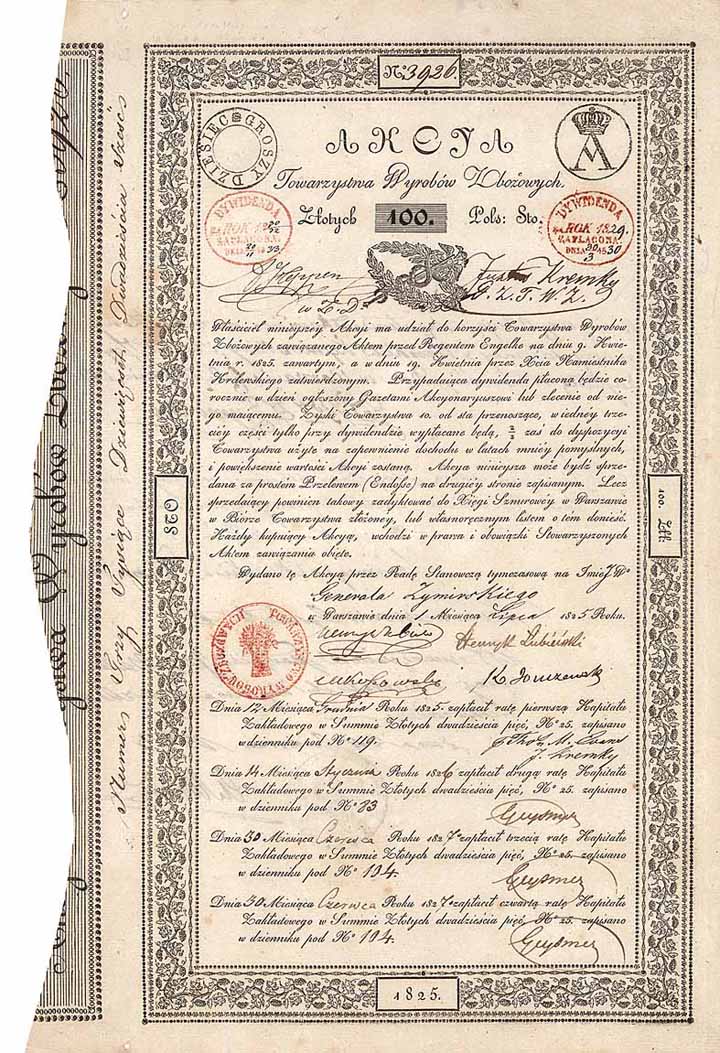 Nº 3926.
DZIESIĘĆ GROSZY
AKCJA
Towarzystwa Wyrobów Zbożowych.
Złotych 100. Pols: Sto.
DYWIDENDA
ZA ROK 18
ZAPŁACONA
DNIA
DYWIDENDA
ZA ROK 1829.
ZAPŁACONA
DNIA 30
Kremky
P. Z. T. W. Z.
Właściciel ninieyszey Akcyi ma udział do korzyści Towarzystwa Wyrobów
Zbożowych zawiązanego Aktem przed Regentem Engelke na dniu 9. Kwie-
tnia r. 1825. zawartym, a w dniu 19. Kwietnia przez Xcia Namiestnika
Królewskiego zatwierdzonym. Przypadaiąca dywidenda płaconą będzie co-
rocznie w dzień ogłoszony Gazetami Akcyonaryuszowi lub zlecenie od nie-
go maiącemu. Zyski Towarzystwa 10. od sta przenoszące, w iedney trze-
ciey części tylko przy dywidendzie wypłacane będą, 2/3 zaś do dyspozycyi
Towarzystwa użyte na zapewnienie dochodu w latach mniey pomyslnych,
i powiększenie wartości Akcyi zostaną. Akcya ninieysza może bydź sprze-
dana za prostém Przelewem (Endosse) na drugiéy stronie zapisanym. Lecz
sprzedaiący powinien takowy zadyktować do Xięgi Sznurowéy w Warszawie
w Biórze Towarzystwa złożoney, lub własnoręcznym listem o tem donieść.
Każdy kupuiący Akcyą, wchodzi w prawa i obowiązki Stowarzyszonych
Aktem zawiązania obięte.
Wydano tę Akcyą przez Radę Stanowczą tymczasową na Imie JW
Generała Zymirskiego
w Warszawie dnia 1 Miesiąca Lipca 1825 Roku.
TOWARZYSTWO WYROBÓW ZBOŻOWYCH
Henryk Łubieński
Dnia 12 Miesiąca Grudnia Roku 1825. zapłacił ratę pierwszą Kapitału
Zakładowego w Summie Złotych dwadzieścia pięć, Nº 25. zapisano
w dzienniku pod Nº 119.
J. Kremky
Dnia 14 Miesiąca Stycznia Roku 1826 zapłacił drugą ratę Kapitału
Zakładowego w Summie Złotych dwadzieścia pięć, Nº 25. zapisano
w dzienniku pod Nº 83
Geysmer
Dnia 30 Miesiąca Czerwca Roku 1827 zapłacił trzecią ratę Kapitału
Zakładowego w Summie Złotych dwadzieścia pięć, Nº 25. zapisano
w dzienniku pod Nº 194.
Geysmer
Dnia 30 Miesiąca Czerwca Roku 1827 zapłacił czwartą ratę Kapitału
Zakładowego w Summie Złotych dwadzieścia pięć, Nº 25. zapisano
w dzienniku pod Nº 194.
Geysmer
1825.
100. Złł.
Numer: Trzy Tysiące Dziewięćset Dwadzieścia Sześć
Wyrobów Zbożow
3926.